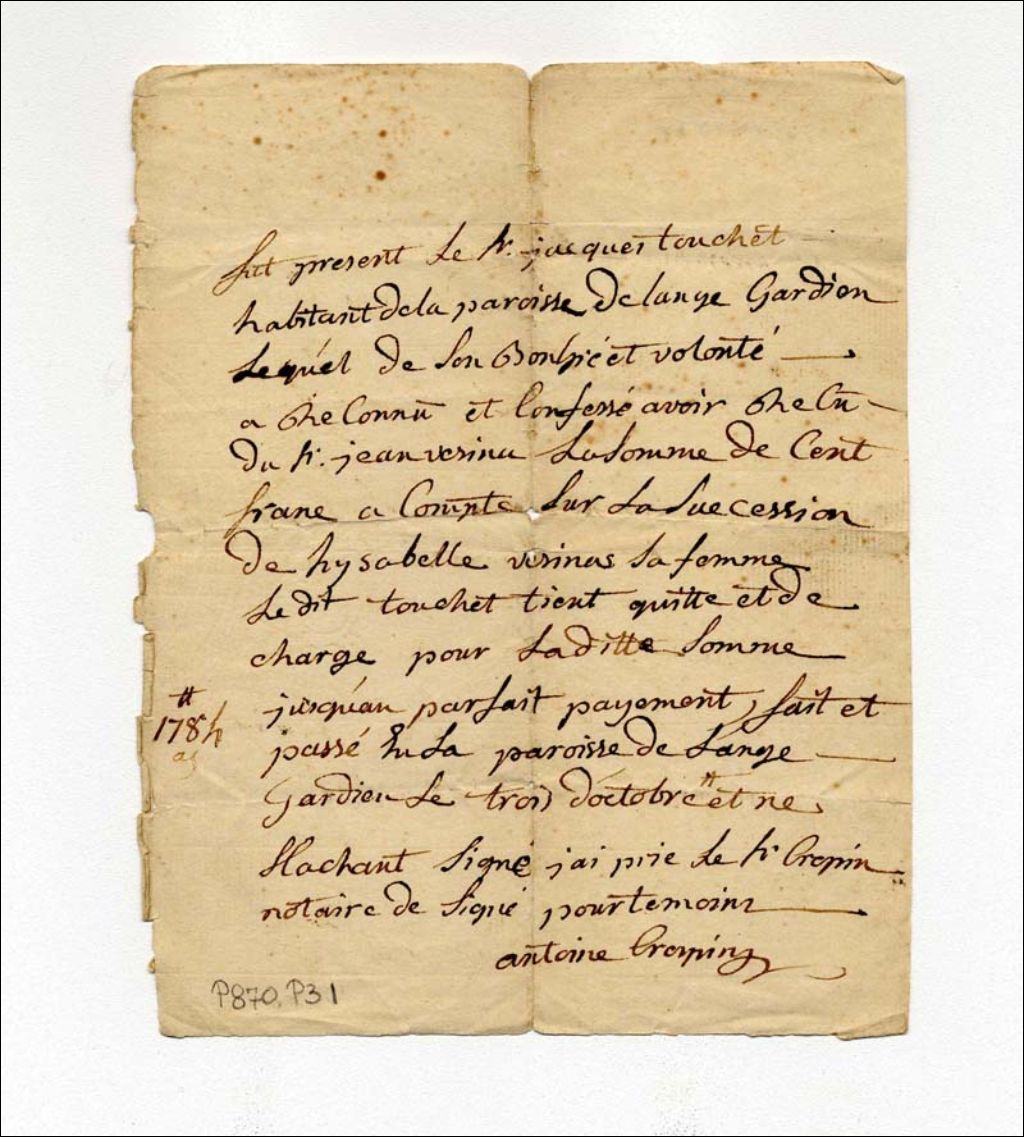 fut present le sr. jacques touchet
habitant dela paroisse De lange Gardien
Lequel de son Bonhé et volonté
a Rhe Connu et Confessé avoir Rhe Cu
Du sr. jean vesina La somme de Cent
franc a Compte sur La succession
de hysabelle vesinas sa femme
Le dit touchet tient quitte et de
charge pour La ditte somme
jusquau parfait payement, fait et
1784 passé La paroisse de L'ange
Gardien Le trois d'octobre # et ne
Sachant signé jai prie Le sr Crepin
notaire de signé pour temoin
antoine Crepin
P870, P31